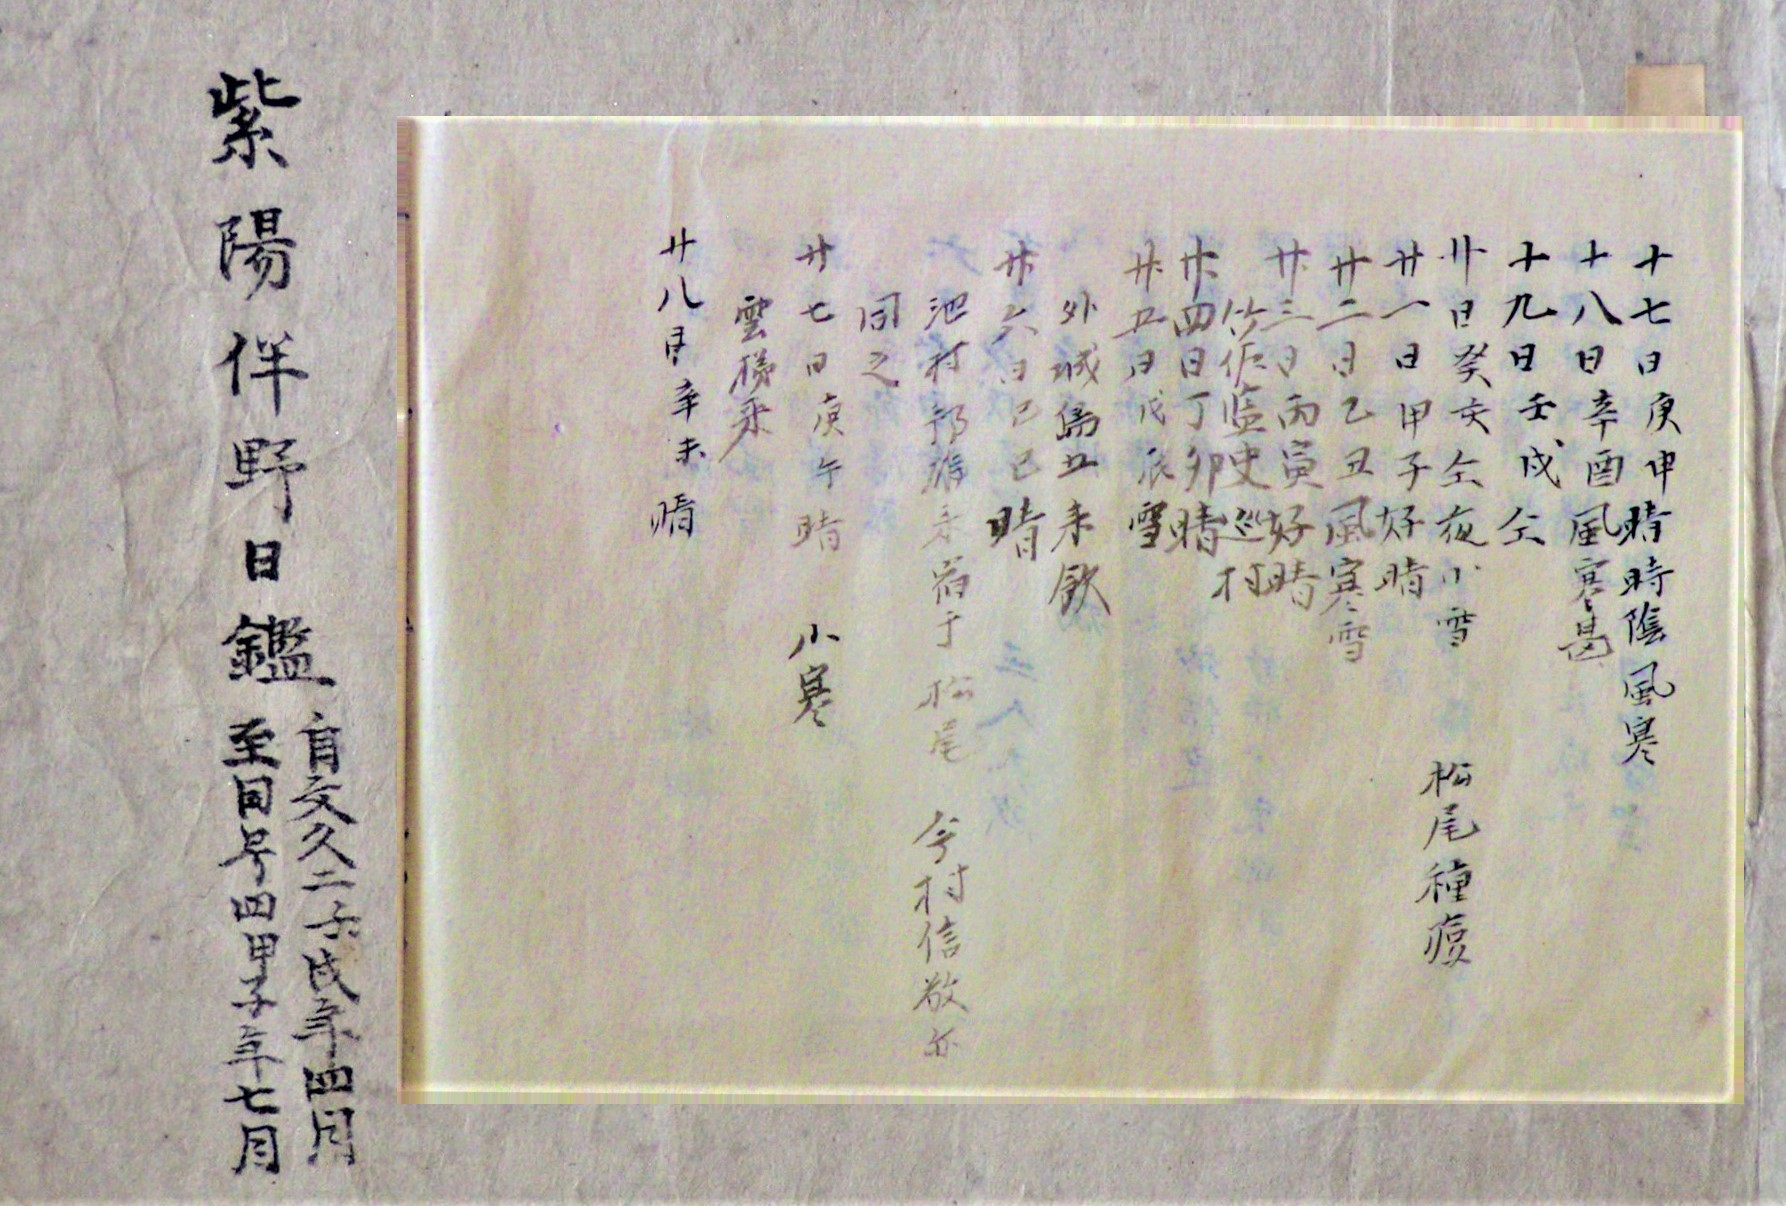 十七日庚申時晴時陰風寒
十八日辛酉風寒甚
十九日壬戌仝
廿日癸亥仝夜小雪 松尾種痘
廿一日甲子好晴
廿二日乙丑風寒雪
廿三日丙寅好晴
竹佐監史巡村
廿四日丁卯晴
廿五日戊辰雪
外城 来飲
廿六日己巳晴
池村 来宿于松尾 今村信敬亦
同之
廿七日庚午晴 小寒
雲梯来
廿八日辛未晴
紫陽伴野日鑑
自文久二壬戌年四月
至同号四甲子年七月